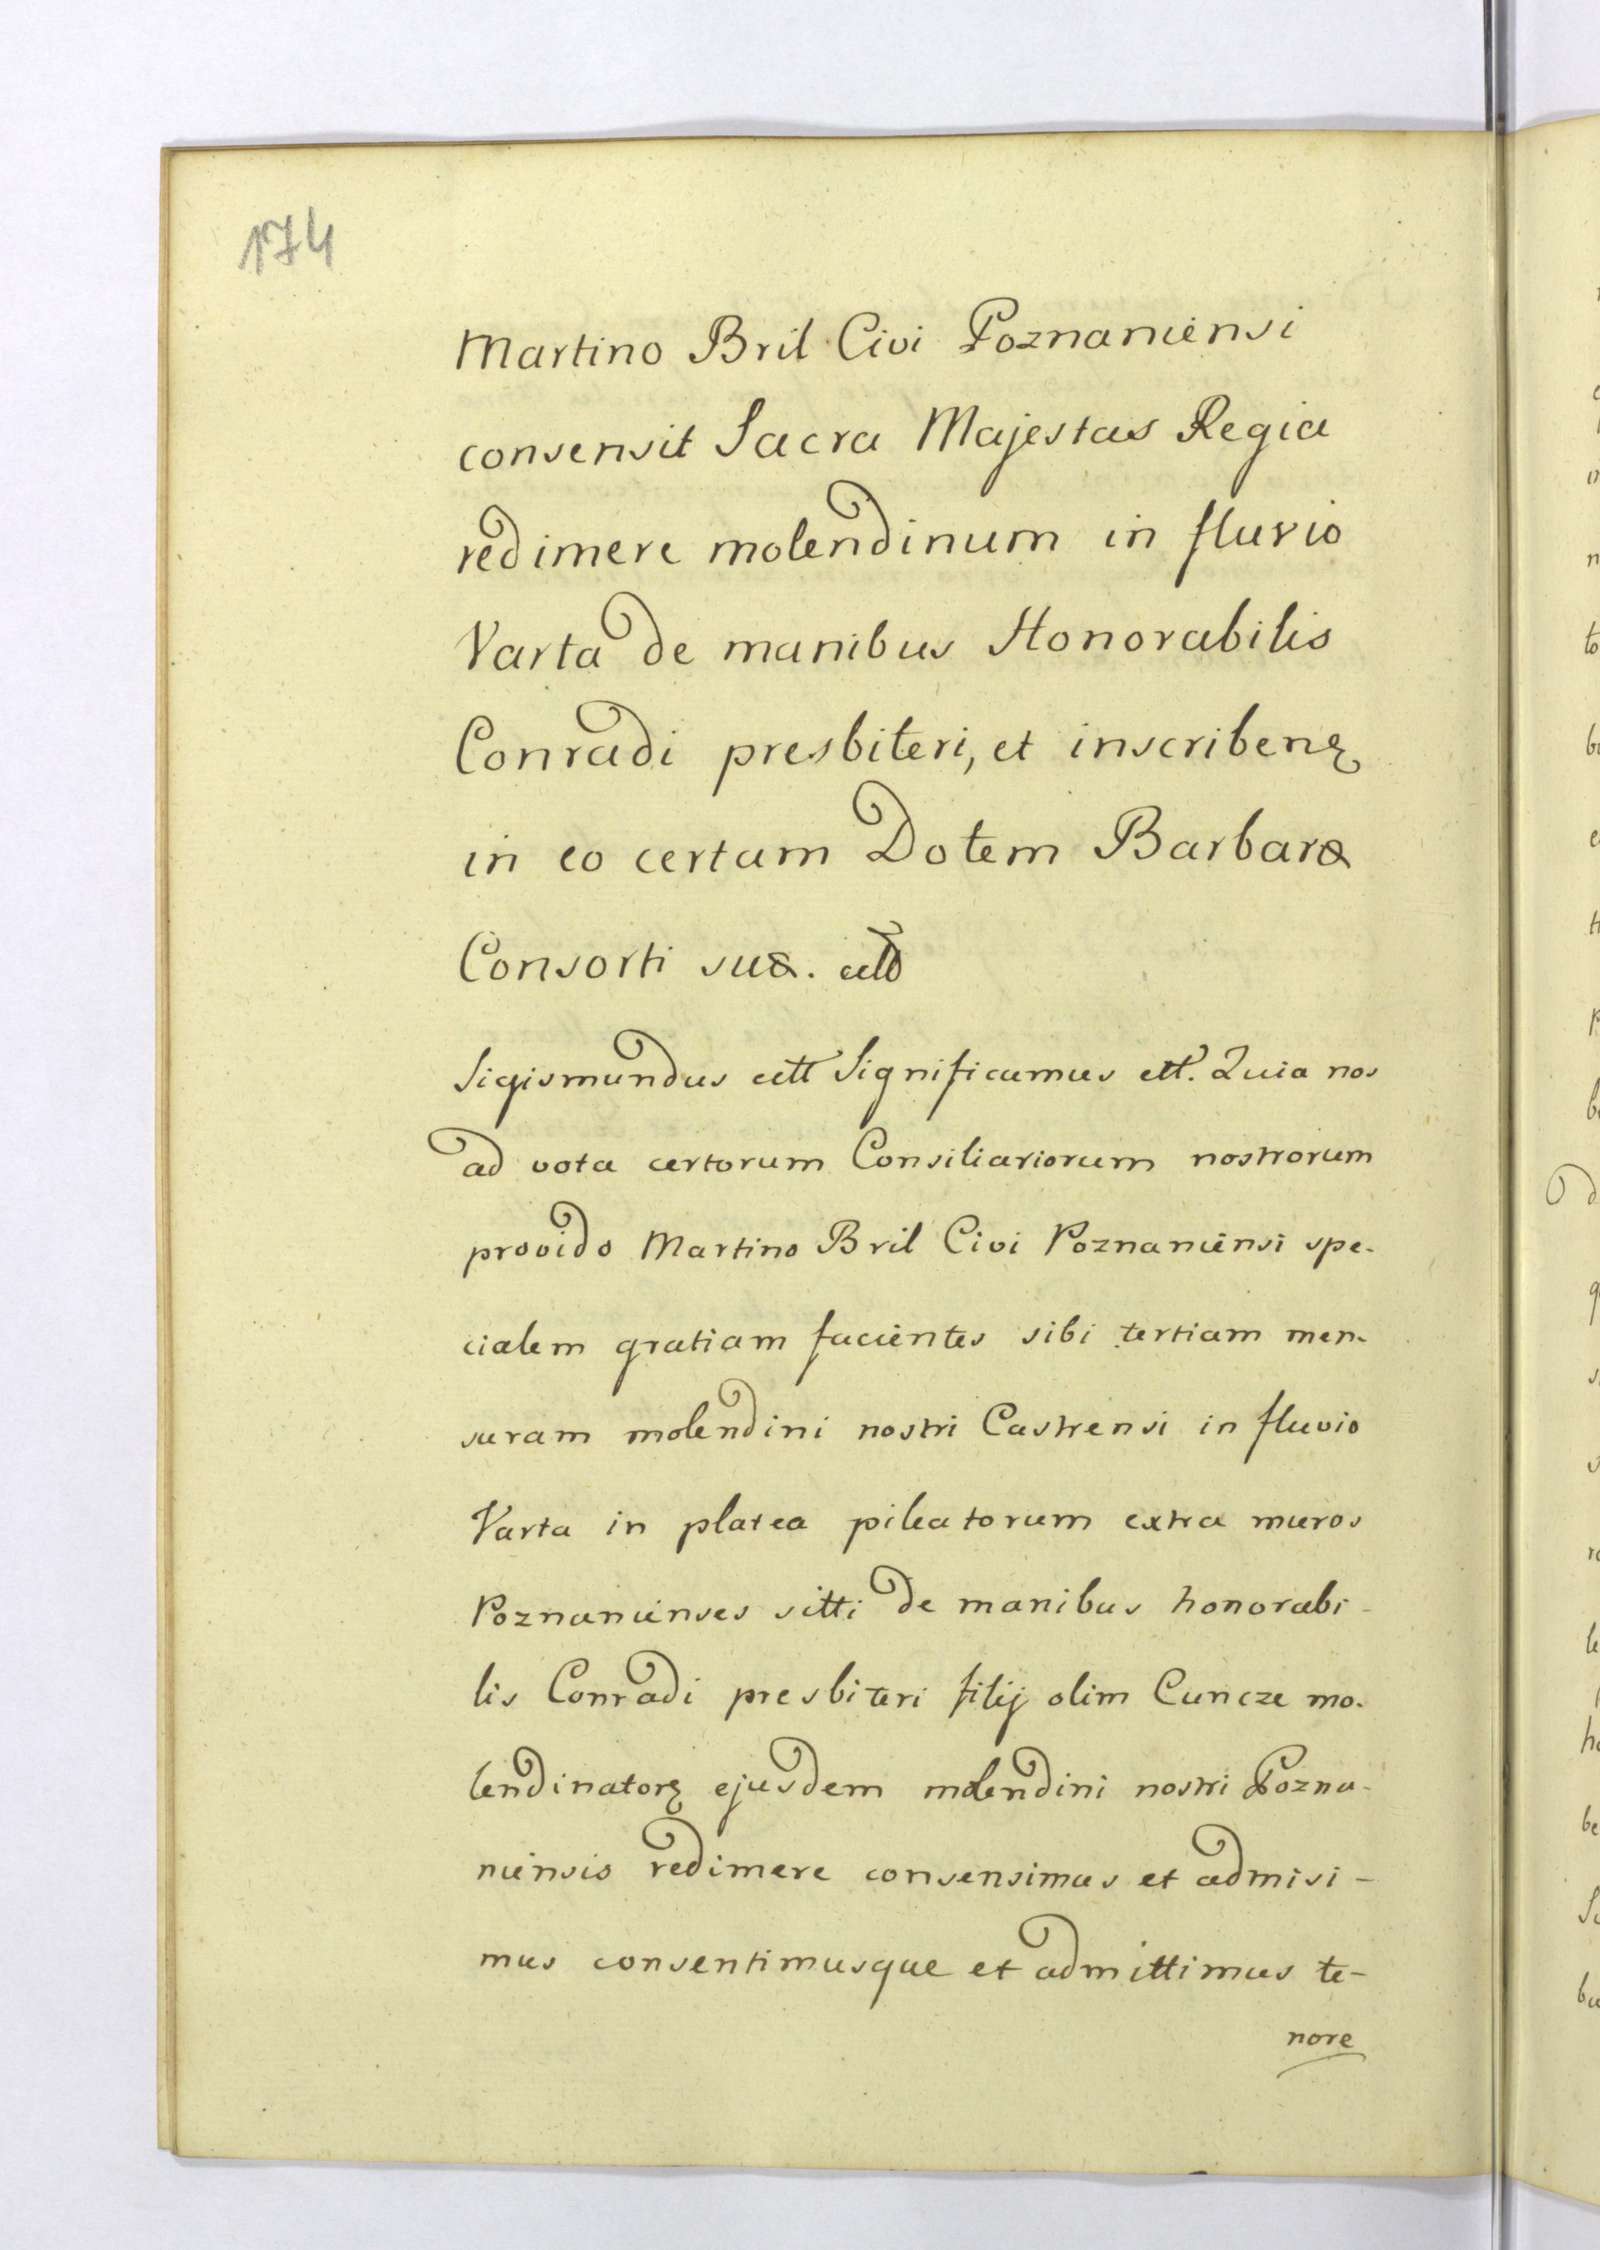 174
Martino Bril Civi Poznaniensi
consensit Sacra Majestas Regia
redimere molendinum in fluvio
Varta de manibus Honorabilis
Conradi presbiteri, et inscribenę
in eo certam Dotem Barbaræ
Consorti suæ. cett
Sigismundus cett Significamus ett. Quia nos
ad vota certorum Consiliariorum nostrorum
provido Martino Bril Civi Poznaniensi spe-
cialem gratiam facientes sibi tertiam men-
suram molendini nostri Castrensi in fluvio
Varta in platea pileatorum extra muros
Poznanienses sitti de manibus honorabi-
lis Conradi presbiteri filij olim Cuncze mo-
lendinatorę ejusdem molendini nostri Pozna-
niensis redimere consensimus et admisi-
mus consentimusque et admittimus te-
nore